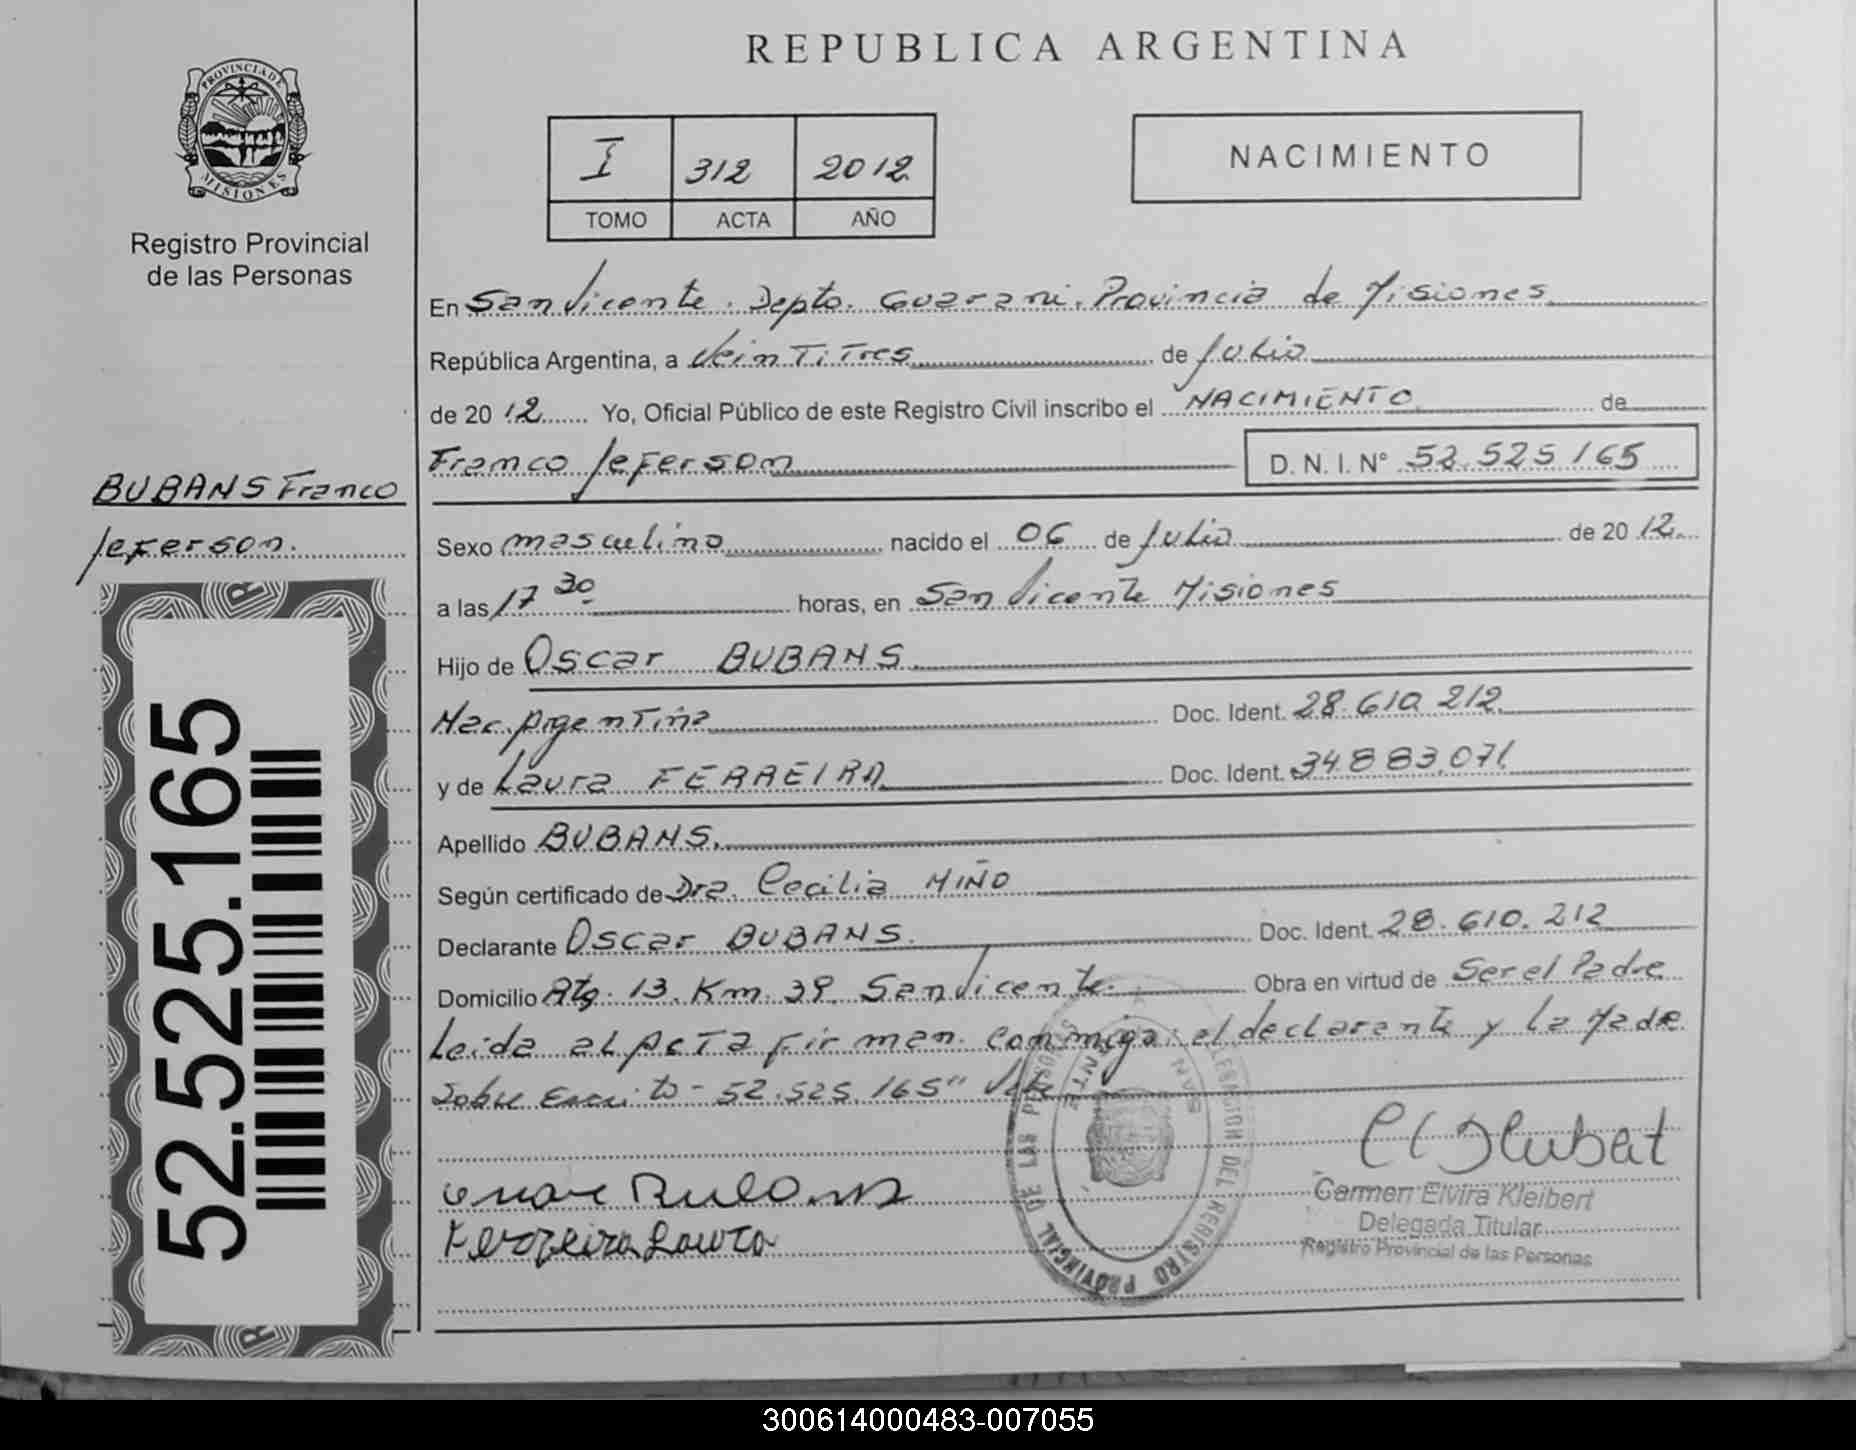 REPUBLICA ARGENTINA
PROVINCIA DE
MISIONES
Registro Provincial
de las Personas
I 312 2012
TOMO ACTA AÑO
NACIMIENTO
En San Vicente. Depto. Guarani. Provincia de Misiones
República Argentina, a Veintitres de Julio
de 2012 Yo, Oficial Público de este Registro Civil inscribo el NACIMIENTO de
Franco Jeferson D. N. I. N° 52.525.165
BUBANS Franco
Jeferson.
Sexo masculino nacido el 06 de Julio de 2012
a las 17 30 horas, en San Vicente Misiones
Hijo de Oscar BUBANS.
Nac. Argentina Doc. Ident. 28.610.212.
y de Laura FERREIRA Doc. Ident. 34.883.071
Apellido BUBANS.
Según certificado de Dra. Cecilia MIÑO
Declarante Oscar BUBANS. Doc. Ident. 28.610.212
Domicilio Rta. 13. Km. 39. San Vicente. Obra en virtud de Ser el Padre
Leida el Acta firman conmigo: el declarante y la Madre
Sobre Escrito - 52.525.165" Vale
52.525.165
DELEGACION DEL REGISTRO PROVINCIAL DE LAS PERSONAS
SAN VICENTE
Ferreira Laura
Carmen Elvira Kleibert
Delegada Titular
Registro Provincial de las Personas
300614000483-007055